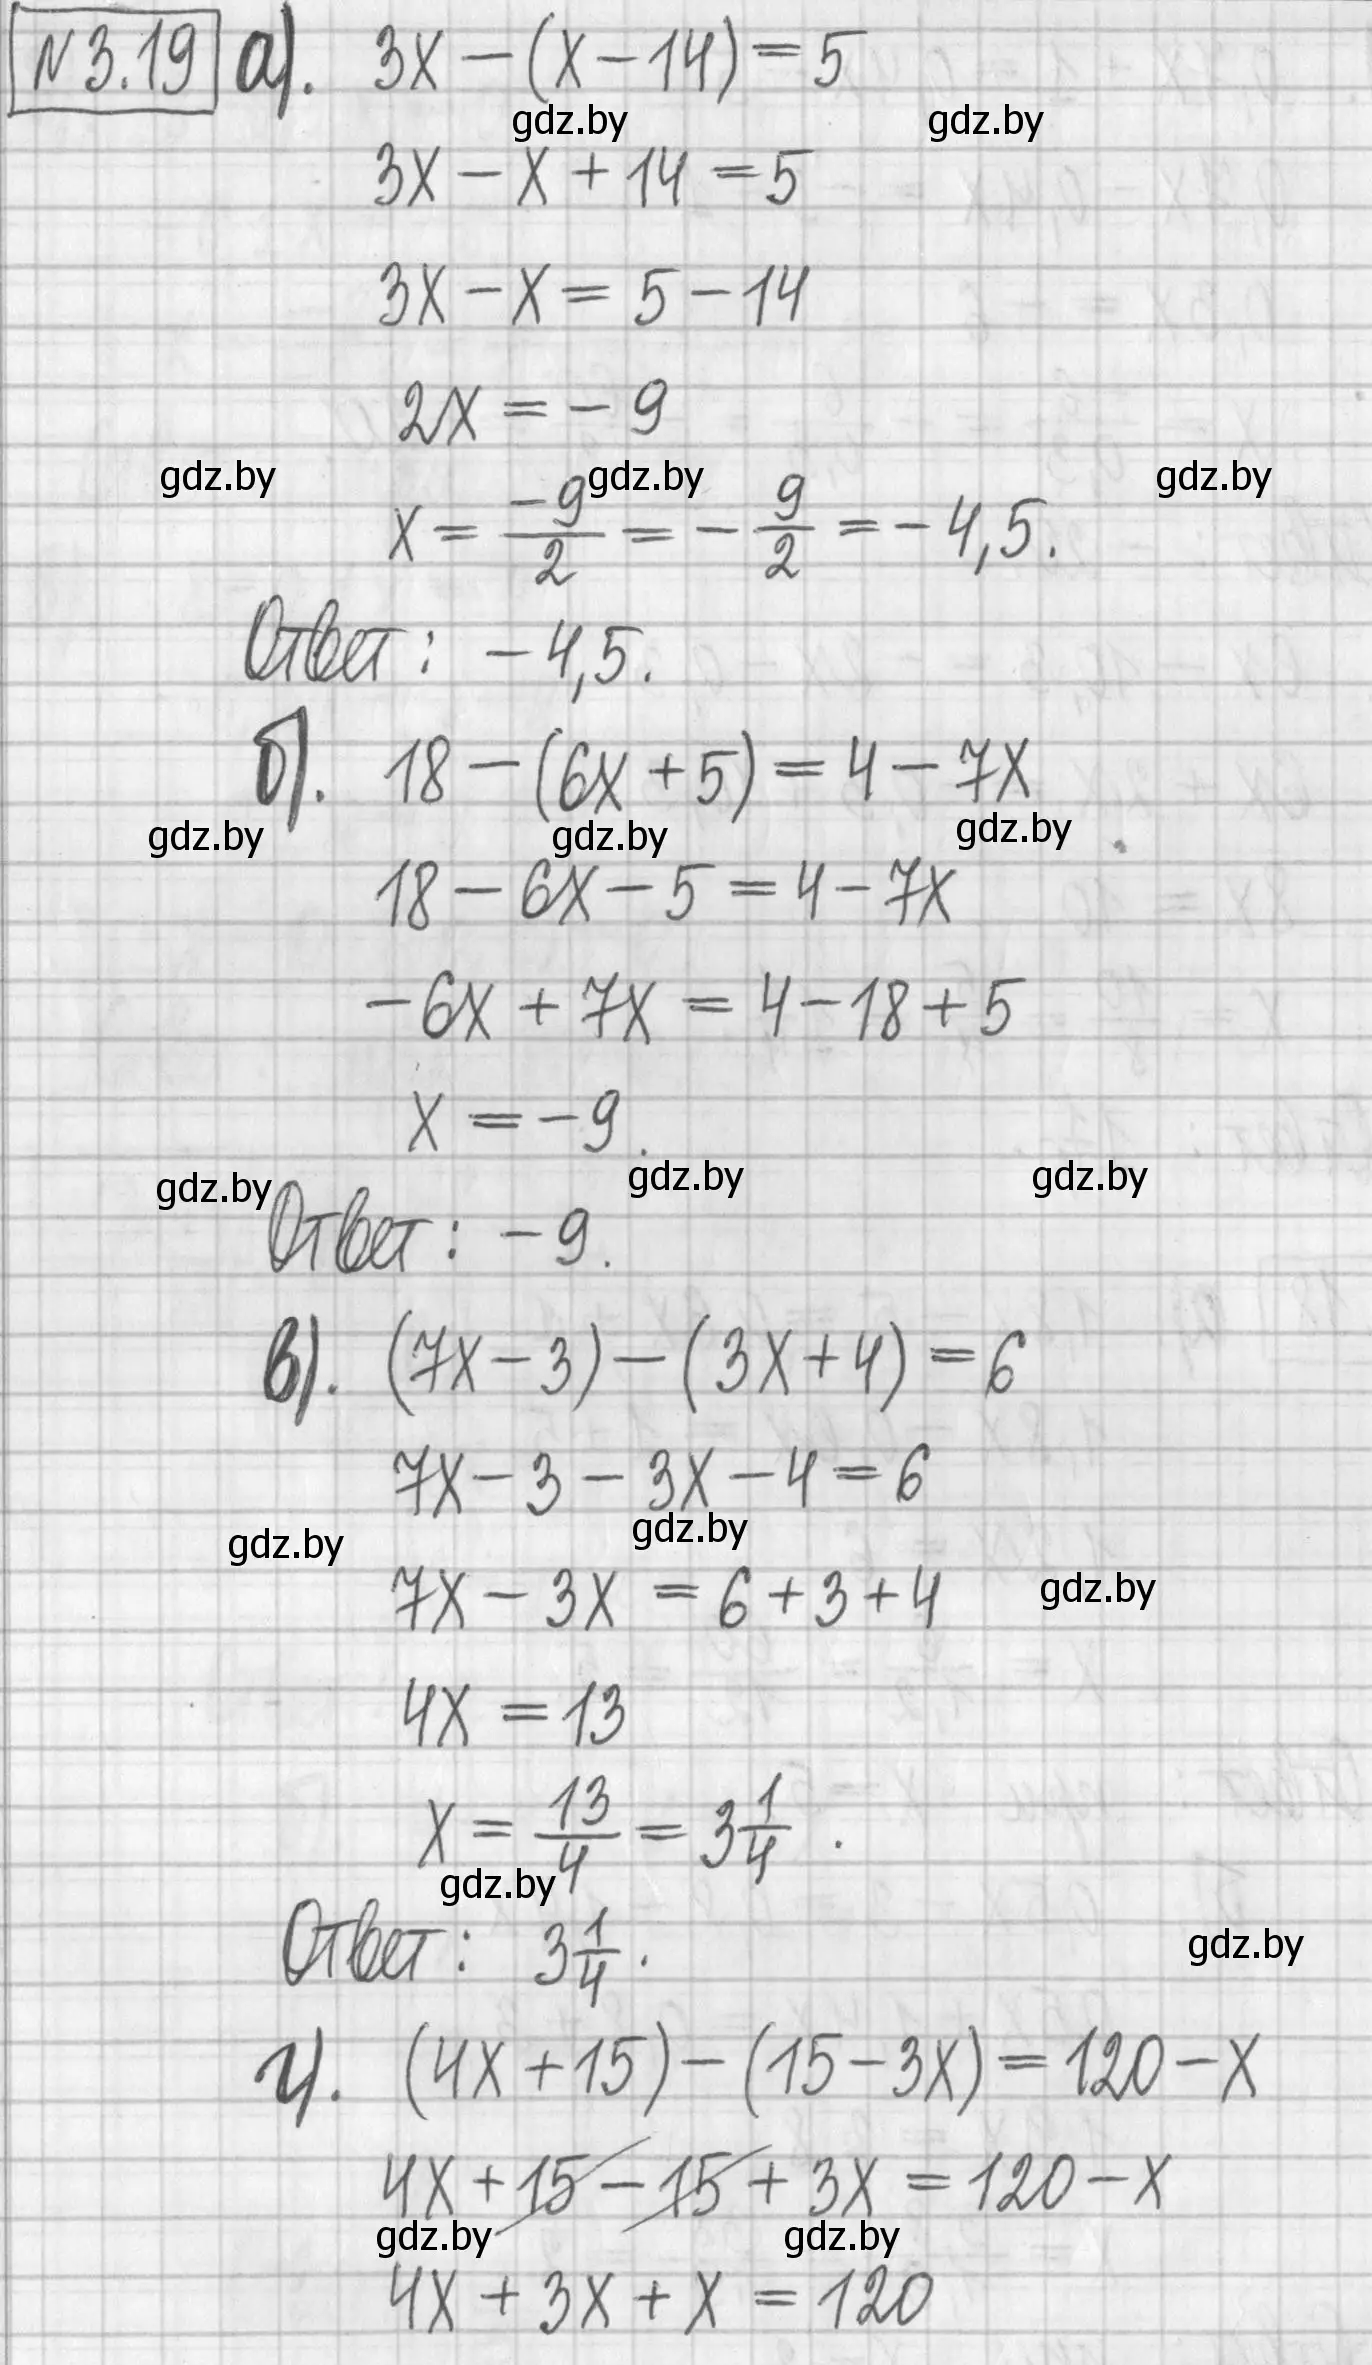 N3.19 а). 3x − (x − 14) = 5
gdz.by gdz.by
3x − x + 14 = 5
3x − x = 5 − 14
2x = −9
gdz.by gdz.by gdz.by
x = −9/2 = −9/2 = −4,5.
Ответ: −4,5.
б). 18 − (6x + 5) = 4 − 7x
gdz.by gdz.by gdz.by
18 − 6x − 5 = 4 − 7x
−6x + 7x = 4 − 18 + 5
x = −9.
gdz.by gdz.by gdz.by
Ответ: −9.
в). (7x − 3) − (3x + 4) = 6
7x − 3 − 3x − 4 = 6
gdz.by gdz.by
7x − 3x = 6 + 3 + 4
gdz.by
4x = 13
x = 13/4 = 3 1/4.
gdz.by
Ответ: 3 1/4.
gdz.by
г). (4x + 15) − (15 − 3x) = 120 − x
4x + 15 − 15 + 3x = 120 − x
gdz.by gdz.by
4x + 3x + x = 120